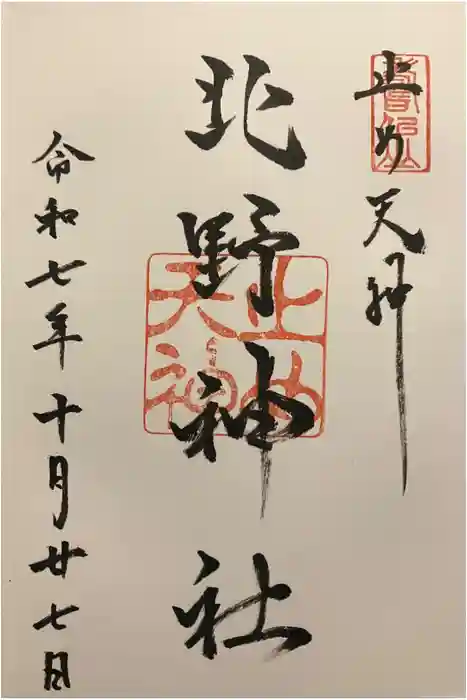 止め天神
北野神社
止め
天神
令和七年十月廿七日